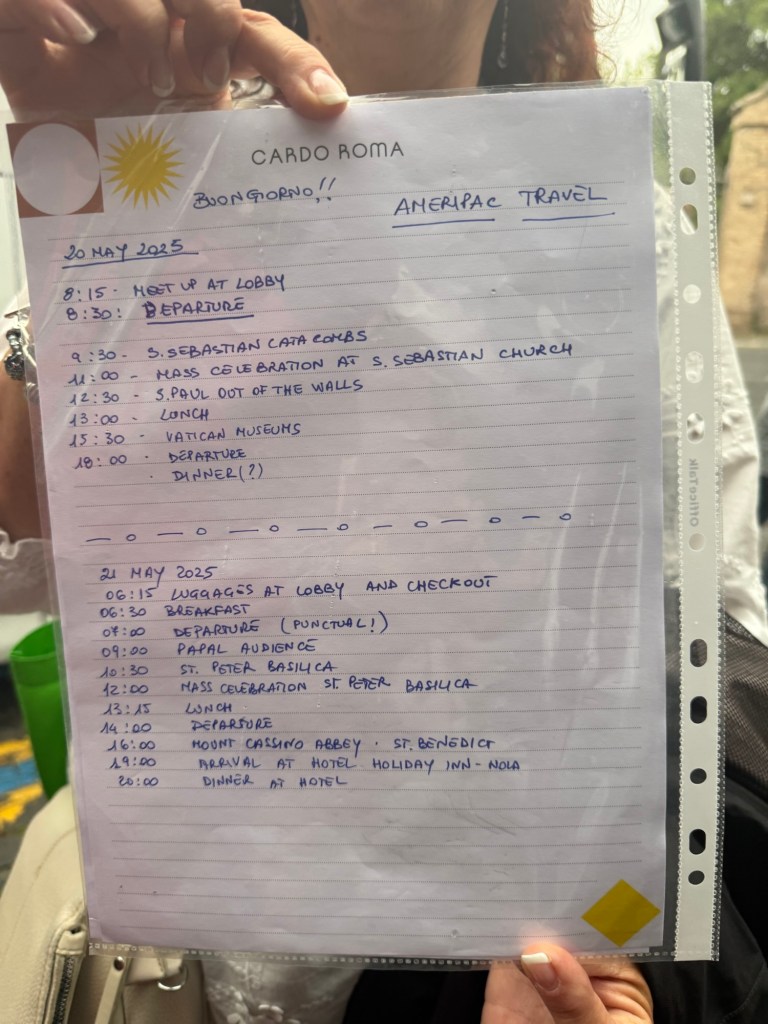 CARDO ROMA
BUONGIORNO!!
AMERIPAC TRAVEL
20 MAY 2025
8:15 - MEET UP AT LOBBY
8:30: DEPARTURE
9:30 - S.SEBASTIAN CATACOMBS
11:00 - MASS CELEBRATION AT S. SEBASTIAN CHURCH
12:30 - S.PAUL OUT OF THE WALLS
13:00 - LUNCH
15:30 - VATICAN MUSEUMS
18:00 - DEPARTURE
. DINNER(?)
21 MAY 2025
06:15 LUGGAGES AT LOBBY AND CHECKOUT
06:30 BREAKFAST
07:00 DEPARTURE (PUNCTUAL!)
09:00 PAPAL AUDIENCE
10:30 ST. PETER BASILICA
12:00 MASS CELEBRATION ST. PETER BASILICA
13:15 LUNCH
14:00 DEPARTURE
16:00 MOUNT CASSINO ABBEY - ST. BENEDICT
19:00 ARRIVAL AT HOTEL HOLIDAY INN - NOLA
20:00 DINNER AT HOTEL
OfficeTalk